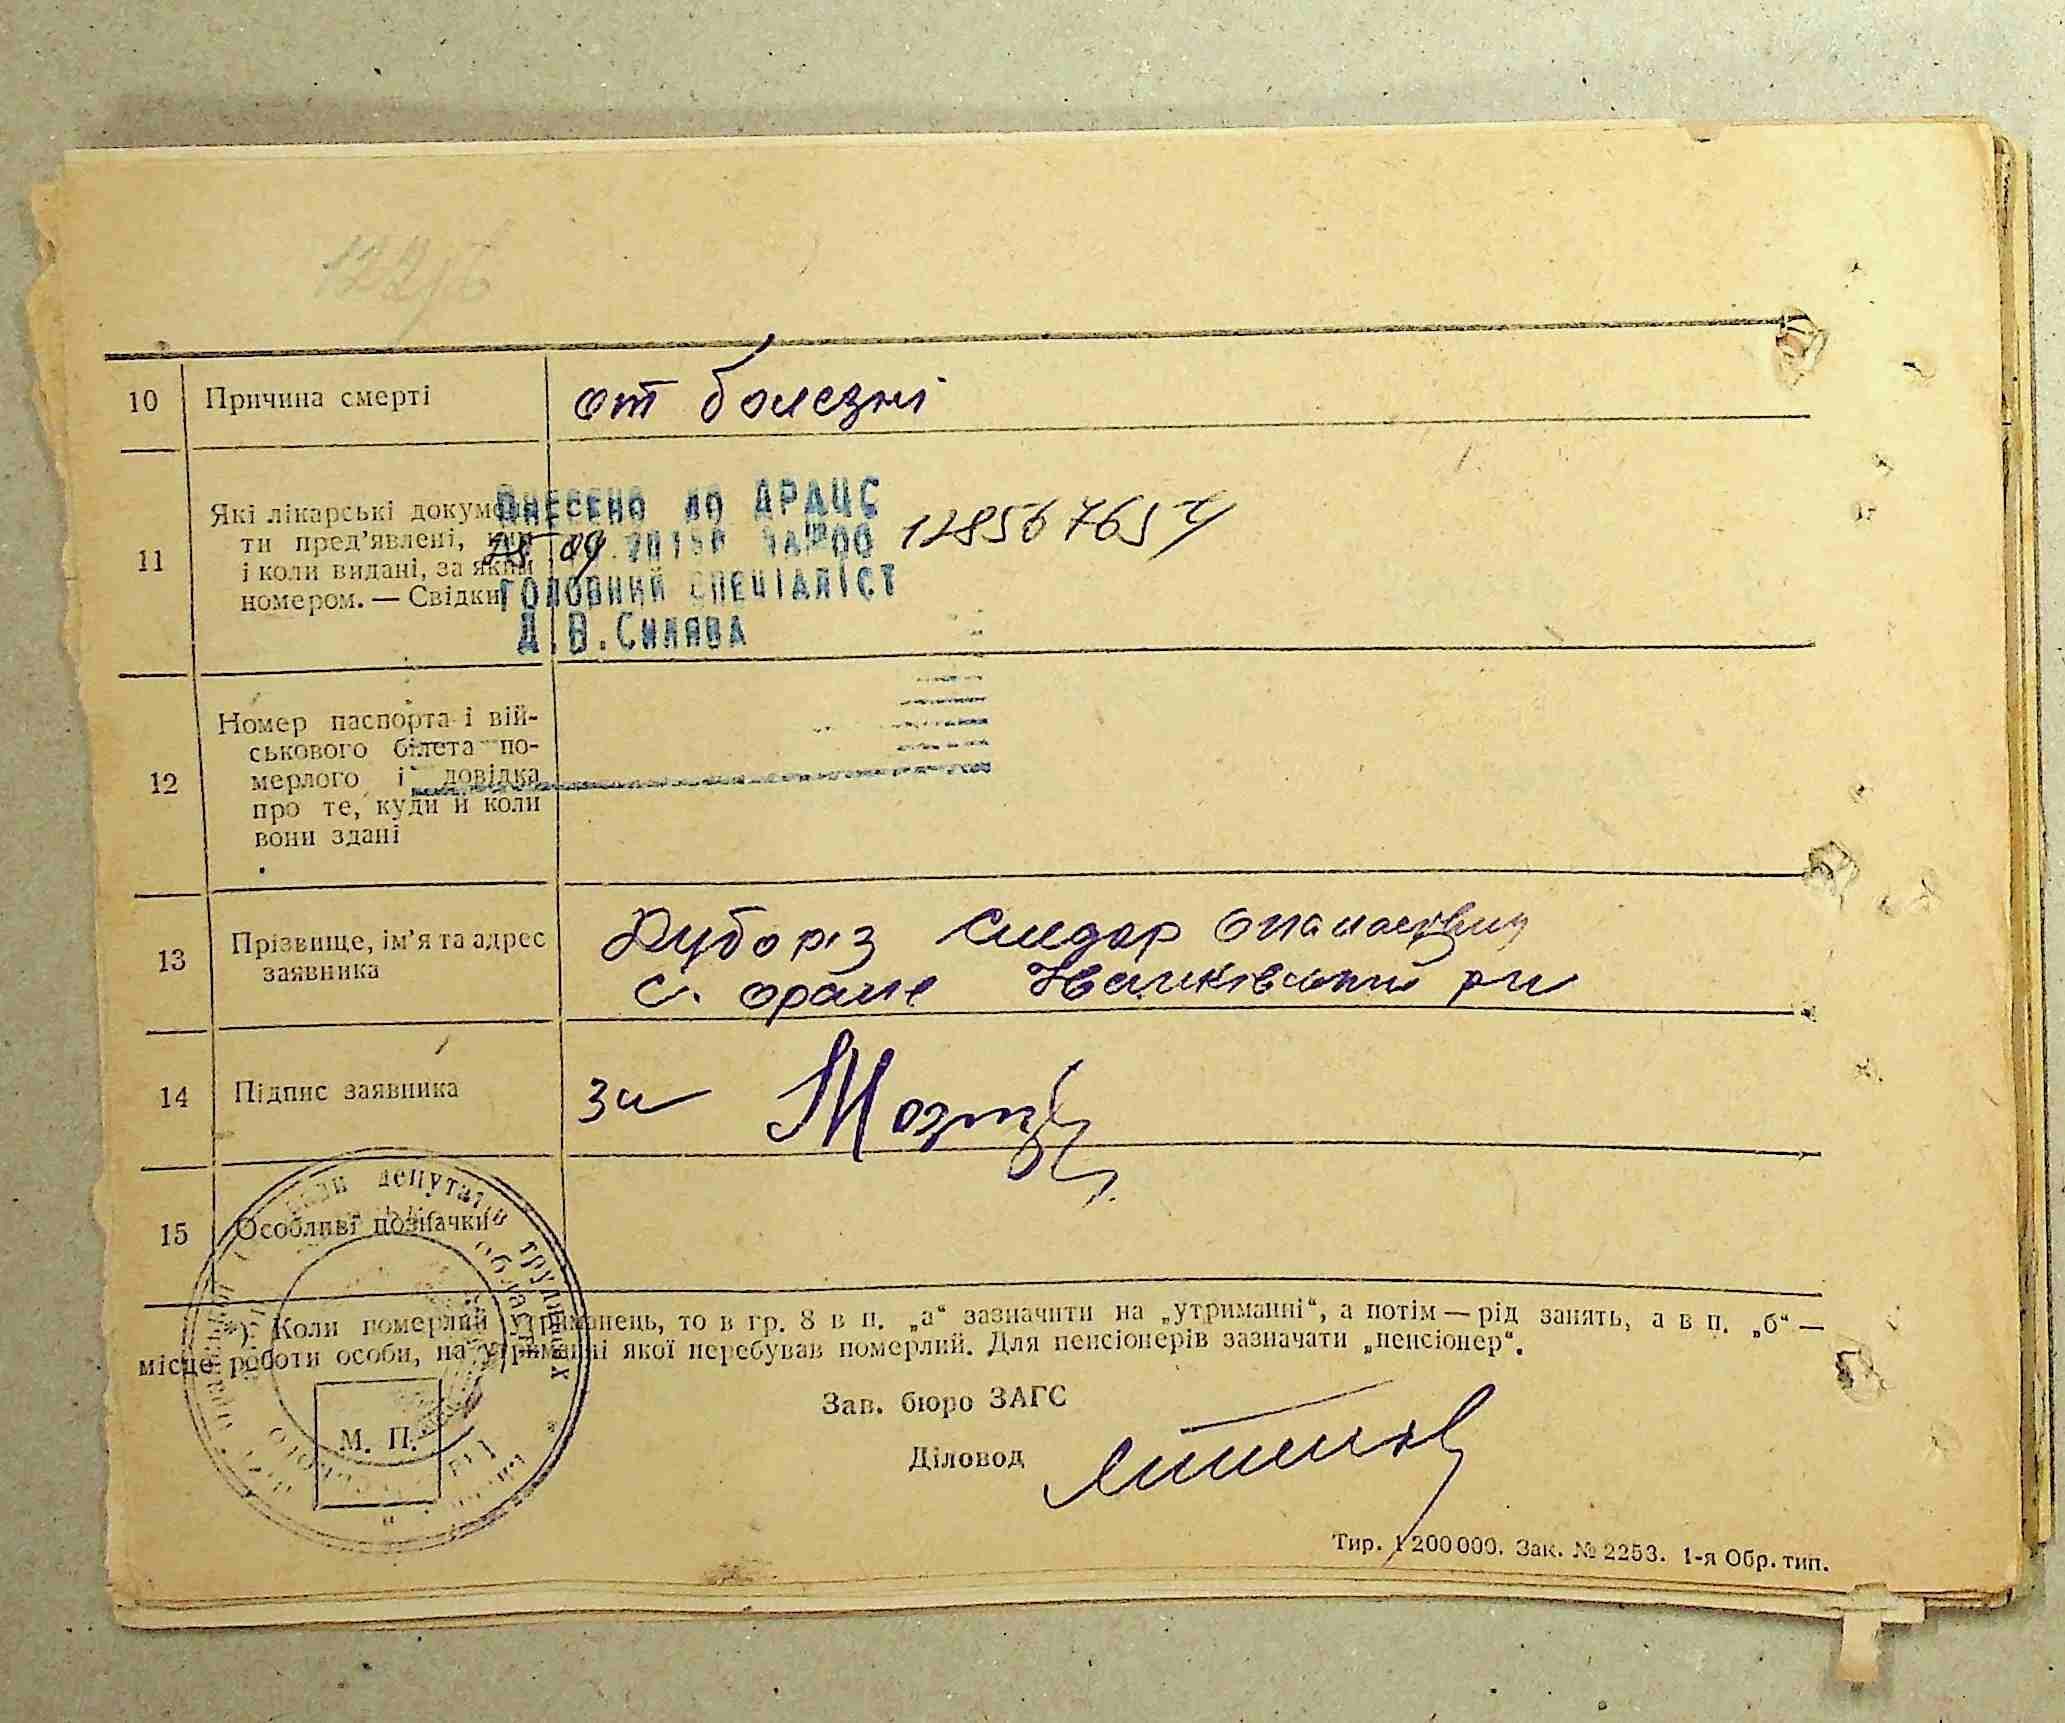 10 Причина смерті от болезні
ВНЕСЕНО ДО ДРАЦС
11 Які лікарські докумен-
ти пред’явлені, ким
і коли видані, за яким
номером. — Свідки
ЗА № 00 12856765
ГОЛОВНИЙ СПЕЦІАЛІСТ
Д.В.Силява
12 Номер паспорта і вій-
ськового білета по-
мерлого і довідка
про те, куди й коли
вони здані
13 Прізвище, ім’я та адрес
заявника
Дуборіз Сидор Опанасович
с. Оране Іванківський р-н
14 Підпис заявника за
15 Особливі позначки
Ради депутатів трудящих
*) Коли померлий утриманець, то в гр. 8 в п. „а“ зазначити на „утриманні“, а потім — рід занять, а в п. „б“ —
місце роботи особи, на утриманні якої перебував померлий. Для пенсіонерів зазначати „пенсіонер“.
Зав. бюро ЗАГС
М. П.
Діловод
Тир. 1 200 000. Зак. № 2253. 1-я Обр. тип.